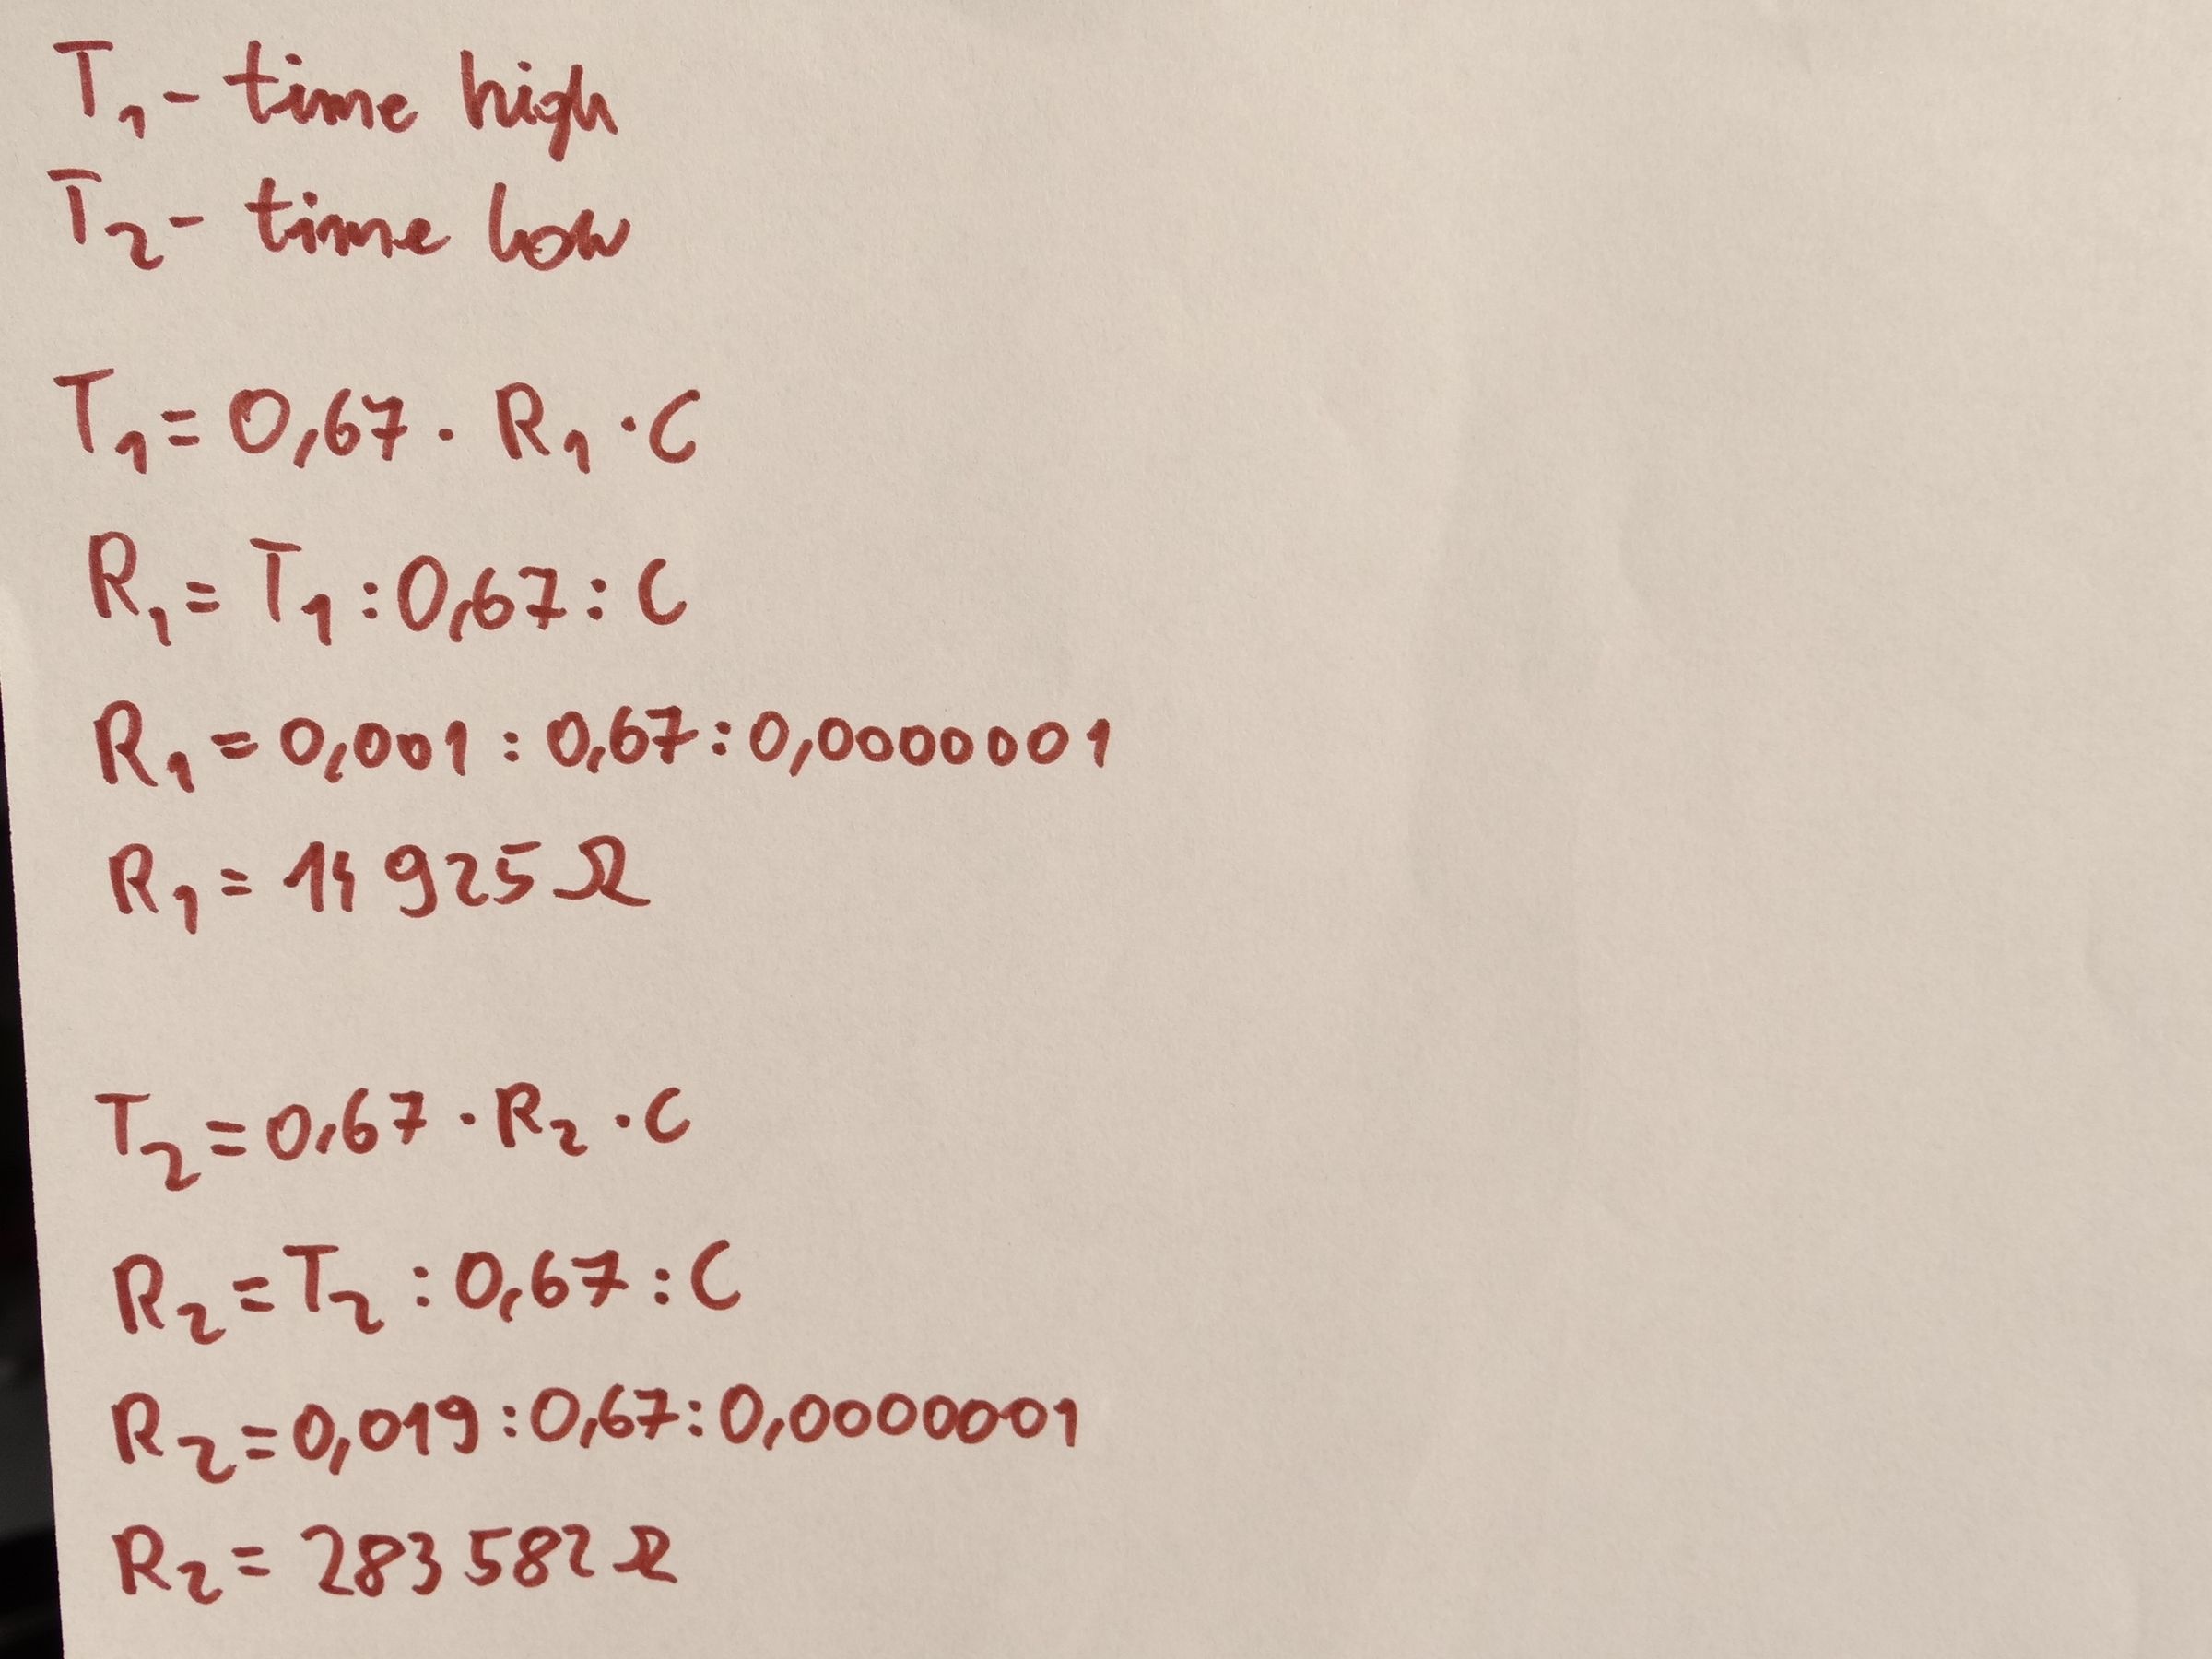 T₁- time high
T₂- time low
T₁= 0,67 · R₁ · C
R₁= T₁ : 0,67 : C
R₁ = 0,001 : 0,67 : 0,0000001
R₁ = 14 925 Ω
T₂ = 0,67 · R₂ · C
R₂ = T₂ : 0,67 : C
R₂ = 0,019 : 0,67 : 0,0000001
R₂ = 283 582 Ω